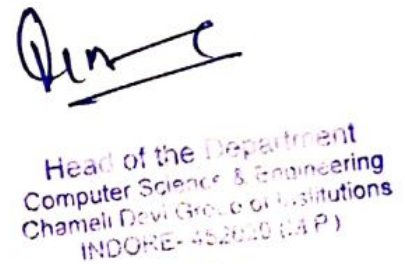 Head of the Department
Computer Science & Engineering
Chameli Devi Group of Institutions
INDORE- 452020 (M.P)